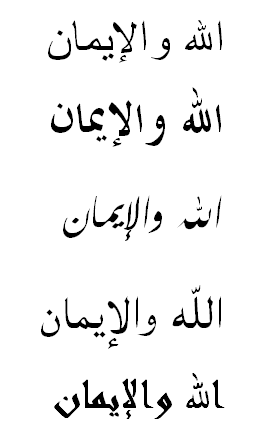 الله و الإيمان
الله و الإيمان
الله والإيمان
اللّه والإيمان
الله والإيمان